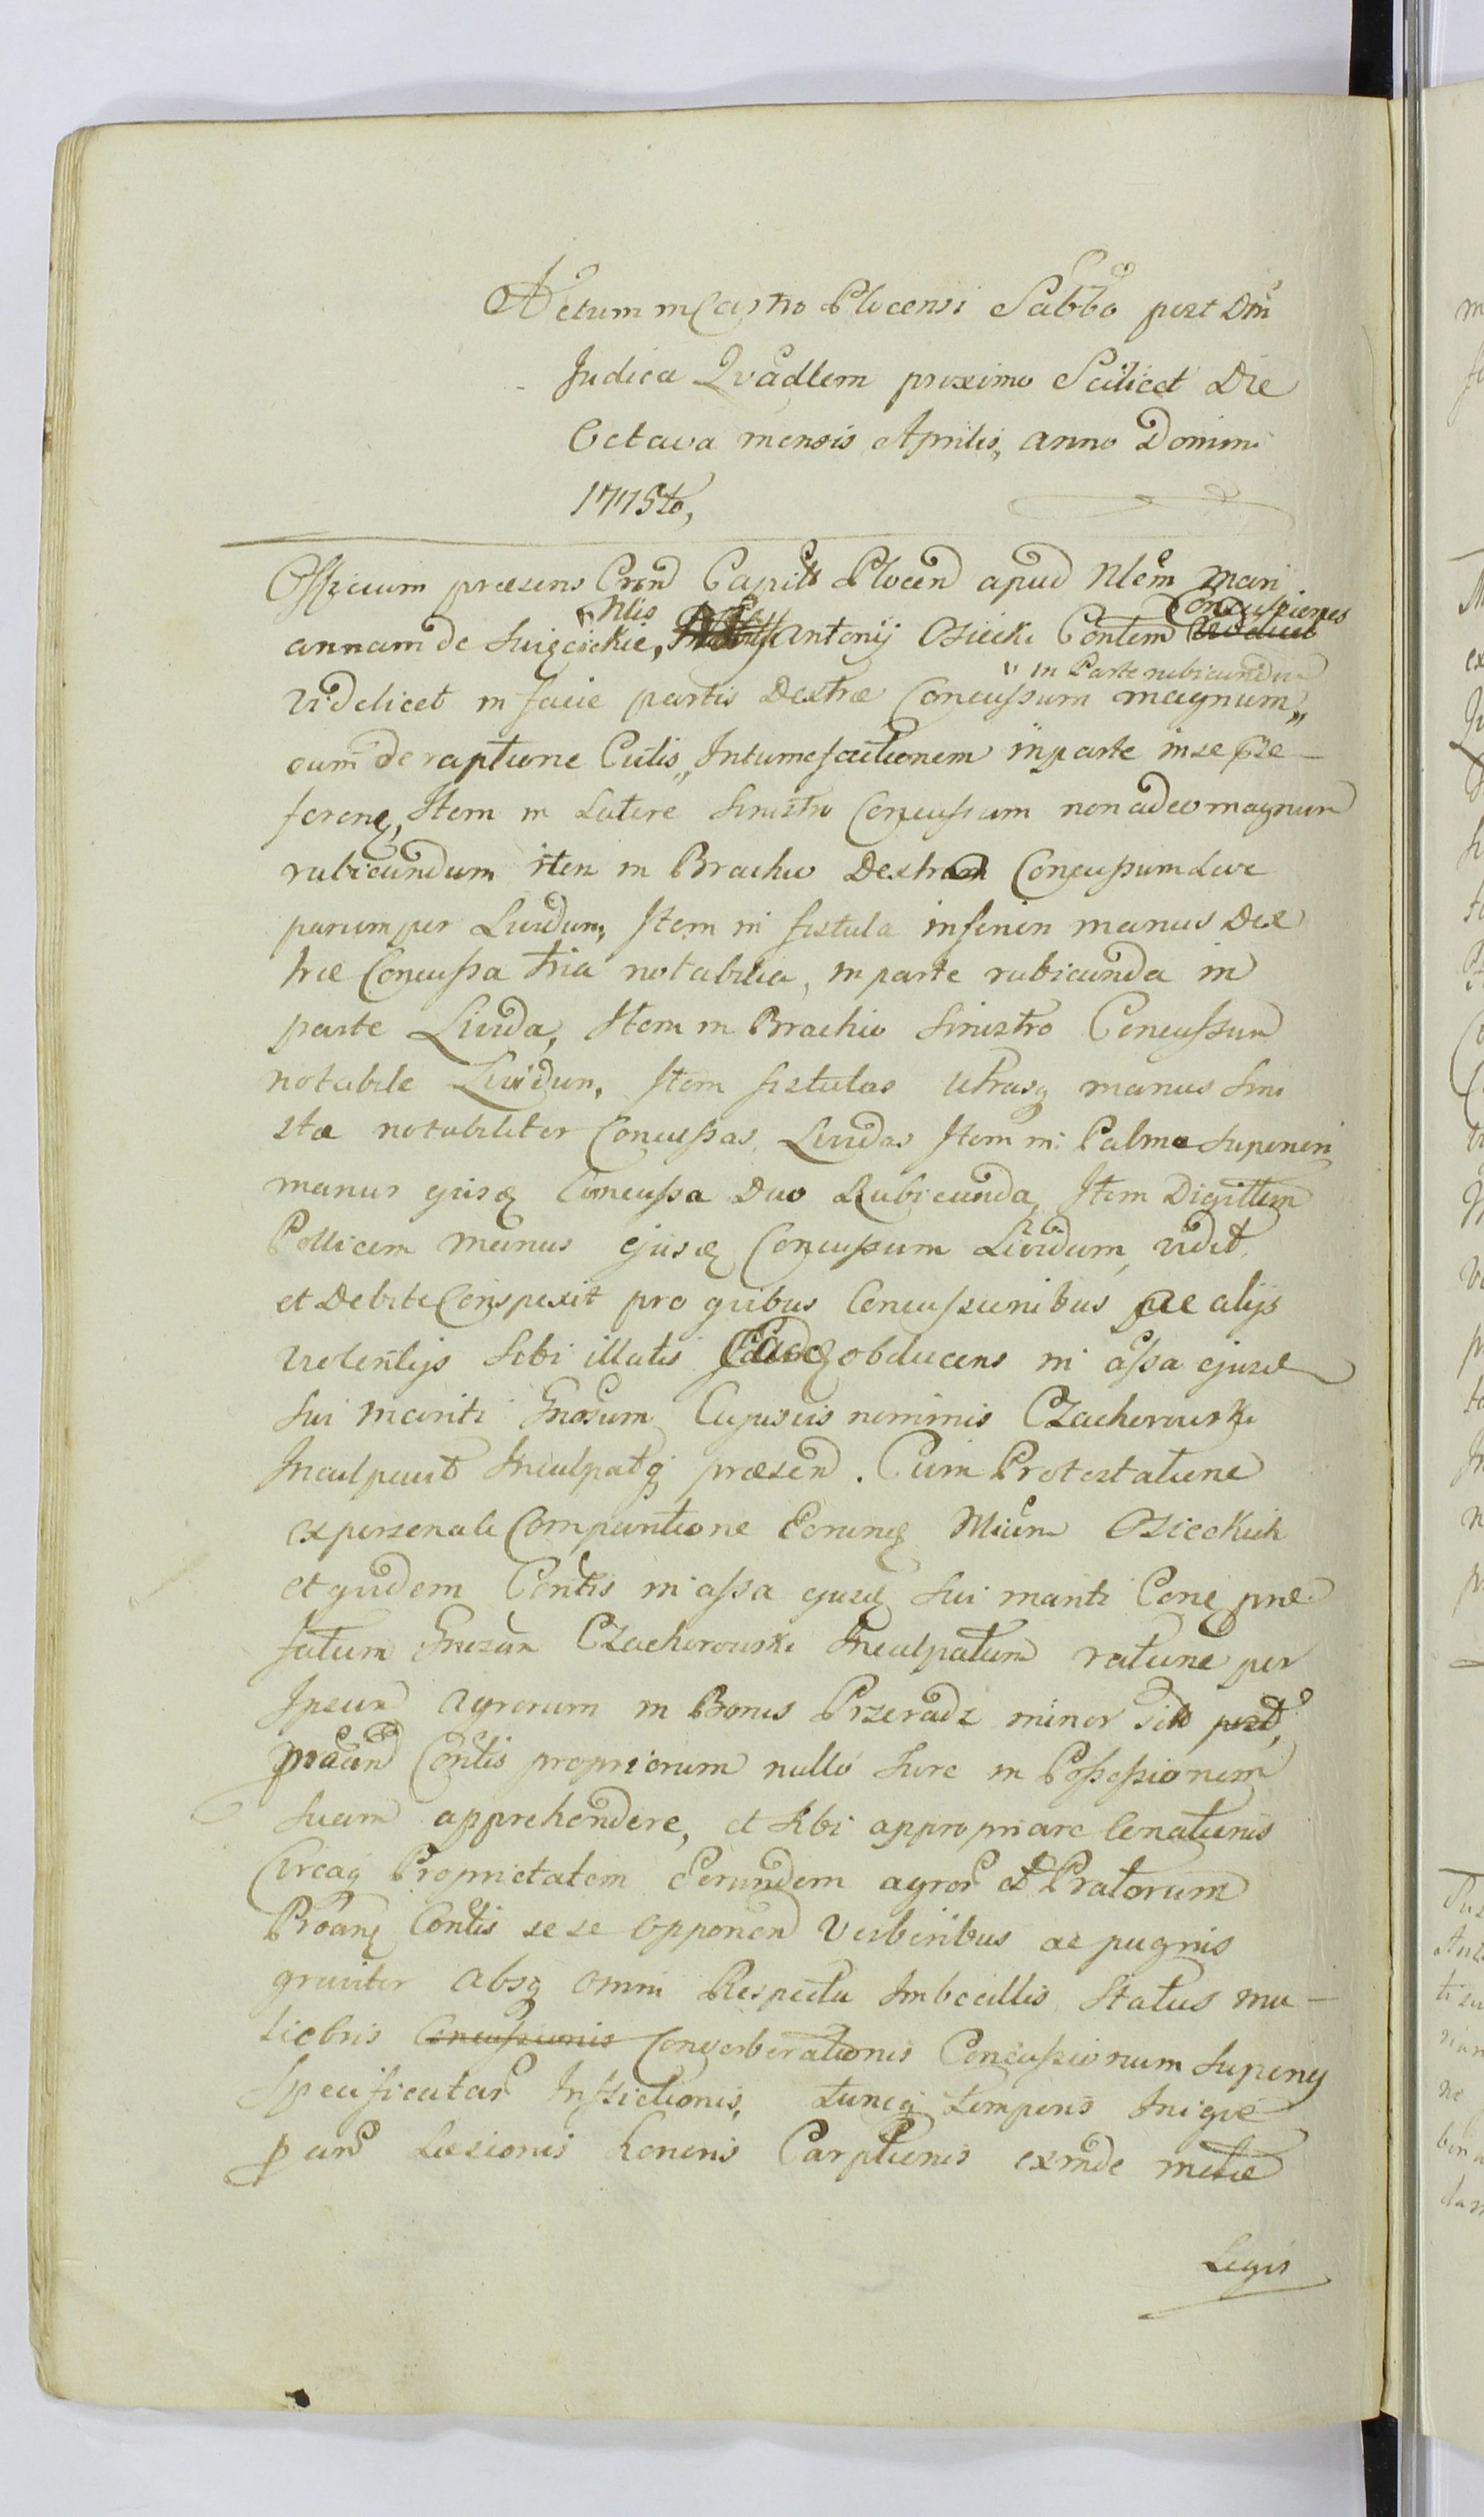 Actum in Castro Plocensi Sabbo post Dm̃
Judica Qvadlem proximo Scilicet Die
Octava mensis Aprilis, anno Domini
1775to,
Officium præsens Cren̄d Capit̄ Plocen̄d apud Nlem Mari
Nlis Concussiones
annam de Swięcickie, Antonij Osiecki Contem
in Parte rubicundum
videlicet in facie partis Dextræ Concussum magnum,,
cum de raptione Cutis,, Intumefactionem in parte in se præ-
feren̄, Item in Latere Sinistro Concussum non adeo magnum
rubicundum item in Brachio Dextro Concussum
parumper Lividum, Item in fistula inferiori manus Dex
træ Concussa tria notabilia, in parte rubicunda in
parte Livida, Item in Brachio Sinistro Concussum
notabile Lividum, Item fistulas utrasq manus Sini
stræ notabiliter Concussas, Lividas Item in Palma Superiori
manus ejusd Concussa Duo Rubicunda, Item Digittum
Pollicem manus ejusd Concussum Lividum, vidit
et Debite Conspexit pro quibus Concussionibus ac alijs
violentijs Sibi illatis Eadē obducens in assa ejusd
Sui mariti Gnosum Cujusvis nominis Czacherowski
Inculpavit Inculpatq præsen̄d. Cum Protestatione
ex personali Comparitione Eorund Mium Osieckich
et quidem Contis in assa ejusd Sui mariti Con̄ præ
fatum Gnosum Czacherowski Inculpatum ratione per
Ipsum agrorum in Bonis Przeradz minor sit
Contis propriorum nullo Jure in Possessionem
Suam apprehendere, et Sibi appropriare Conationis
Circaq Proprietatem Eorundem agror et Pratorum
Contis se se opponen̄d verberibus ac pugnis
graviter absq omni Respectu Imbecillis Status mu-
liebris Concussionis Converberationis Concussionum Superius
Specificatar Inflictionis, tuncq temporis
Læsionis honoris Carptionis exinde metæ
Legis